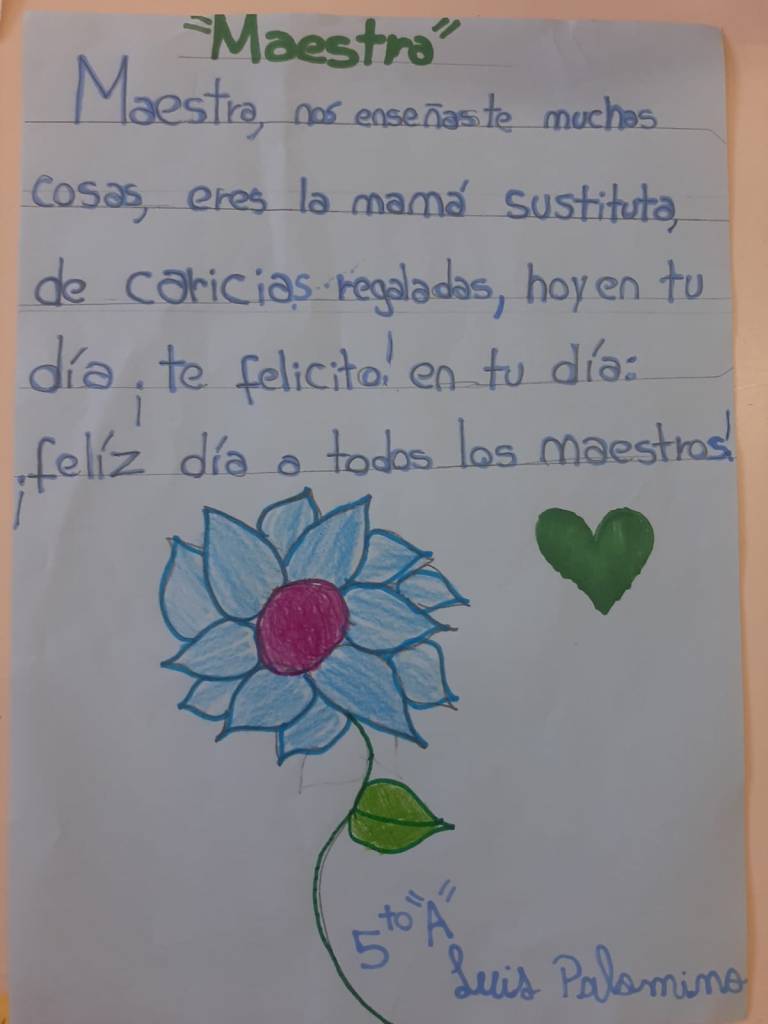 "Maestra"
Maestra, nos enseñaste muchas
cosas, eres la mamá sustituta,
de caricias regaladas, hoy en tu
día ¡te felicito! en tu día:
¡felíz día a todos los maestros!
5to "A"
Luis Palomino